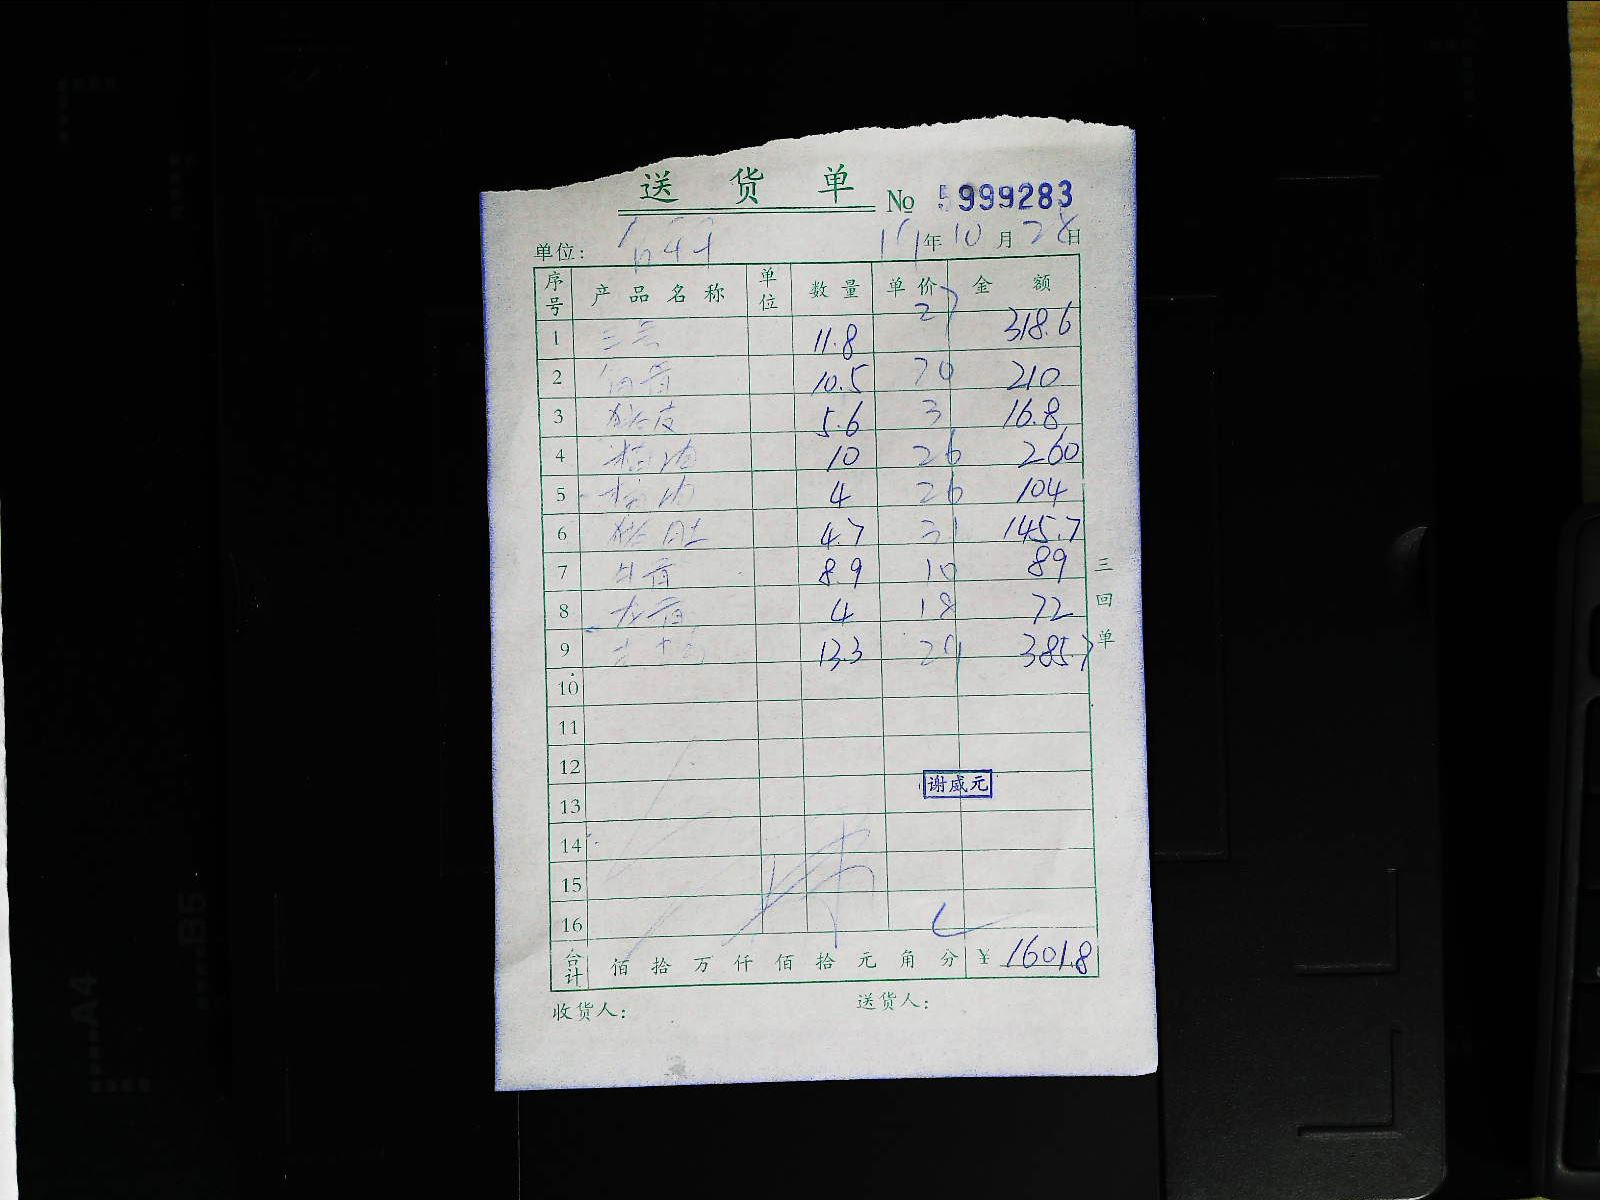 送 货 单 № 5999283
单位: 年 10 月 28 日
序号 产品名称 单位 数量 单价 金额
1 11.8 27 318.6
2 10.5 20 210
3 猪皮 5.6 3 16.8
4 10 26 260
5 4 26 104
6 猪肚 4.7 31 145.7
7 8.9 10 89
8 龙骨 4 18 72
9 13.3 29 385.7
10
11
12
13 谢威元
14
15
16
合计 佰 拾 万 仟 佰 拾 元 角 分 ¥ 1601.8
收货人: 送货人:
三回单